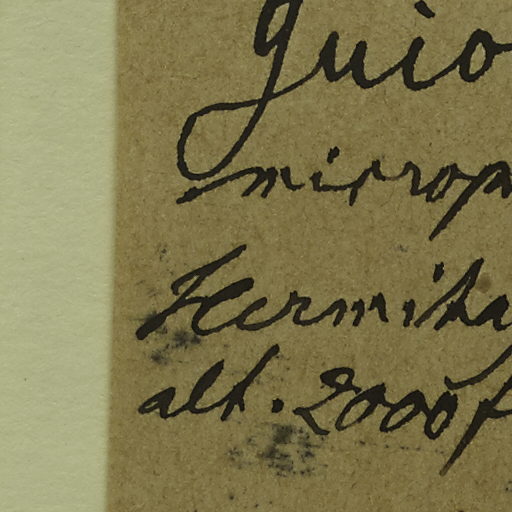 Guio
microp
Hermita
alt. 2000 f